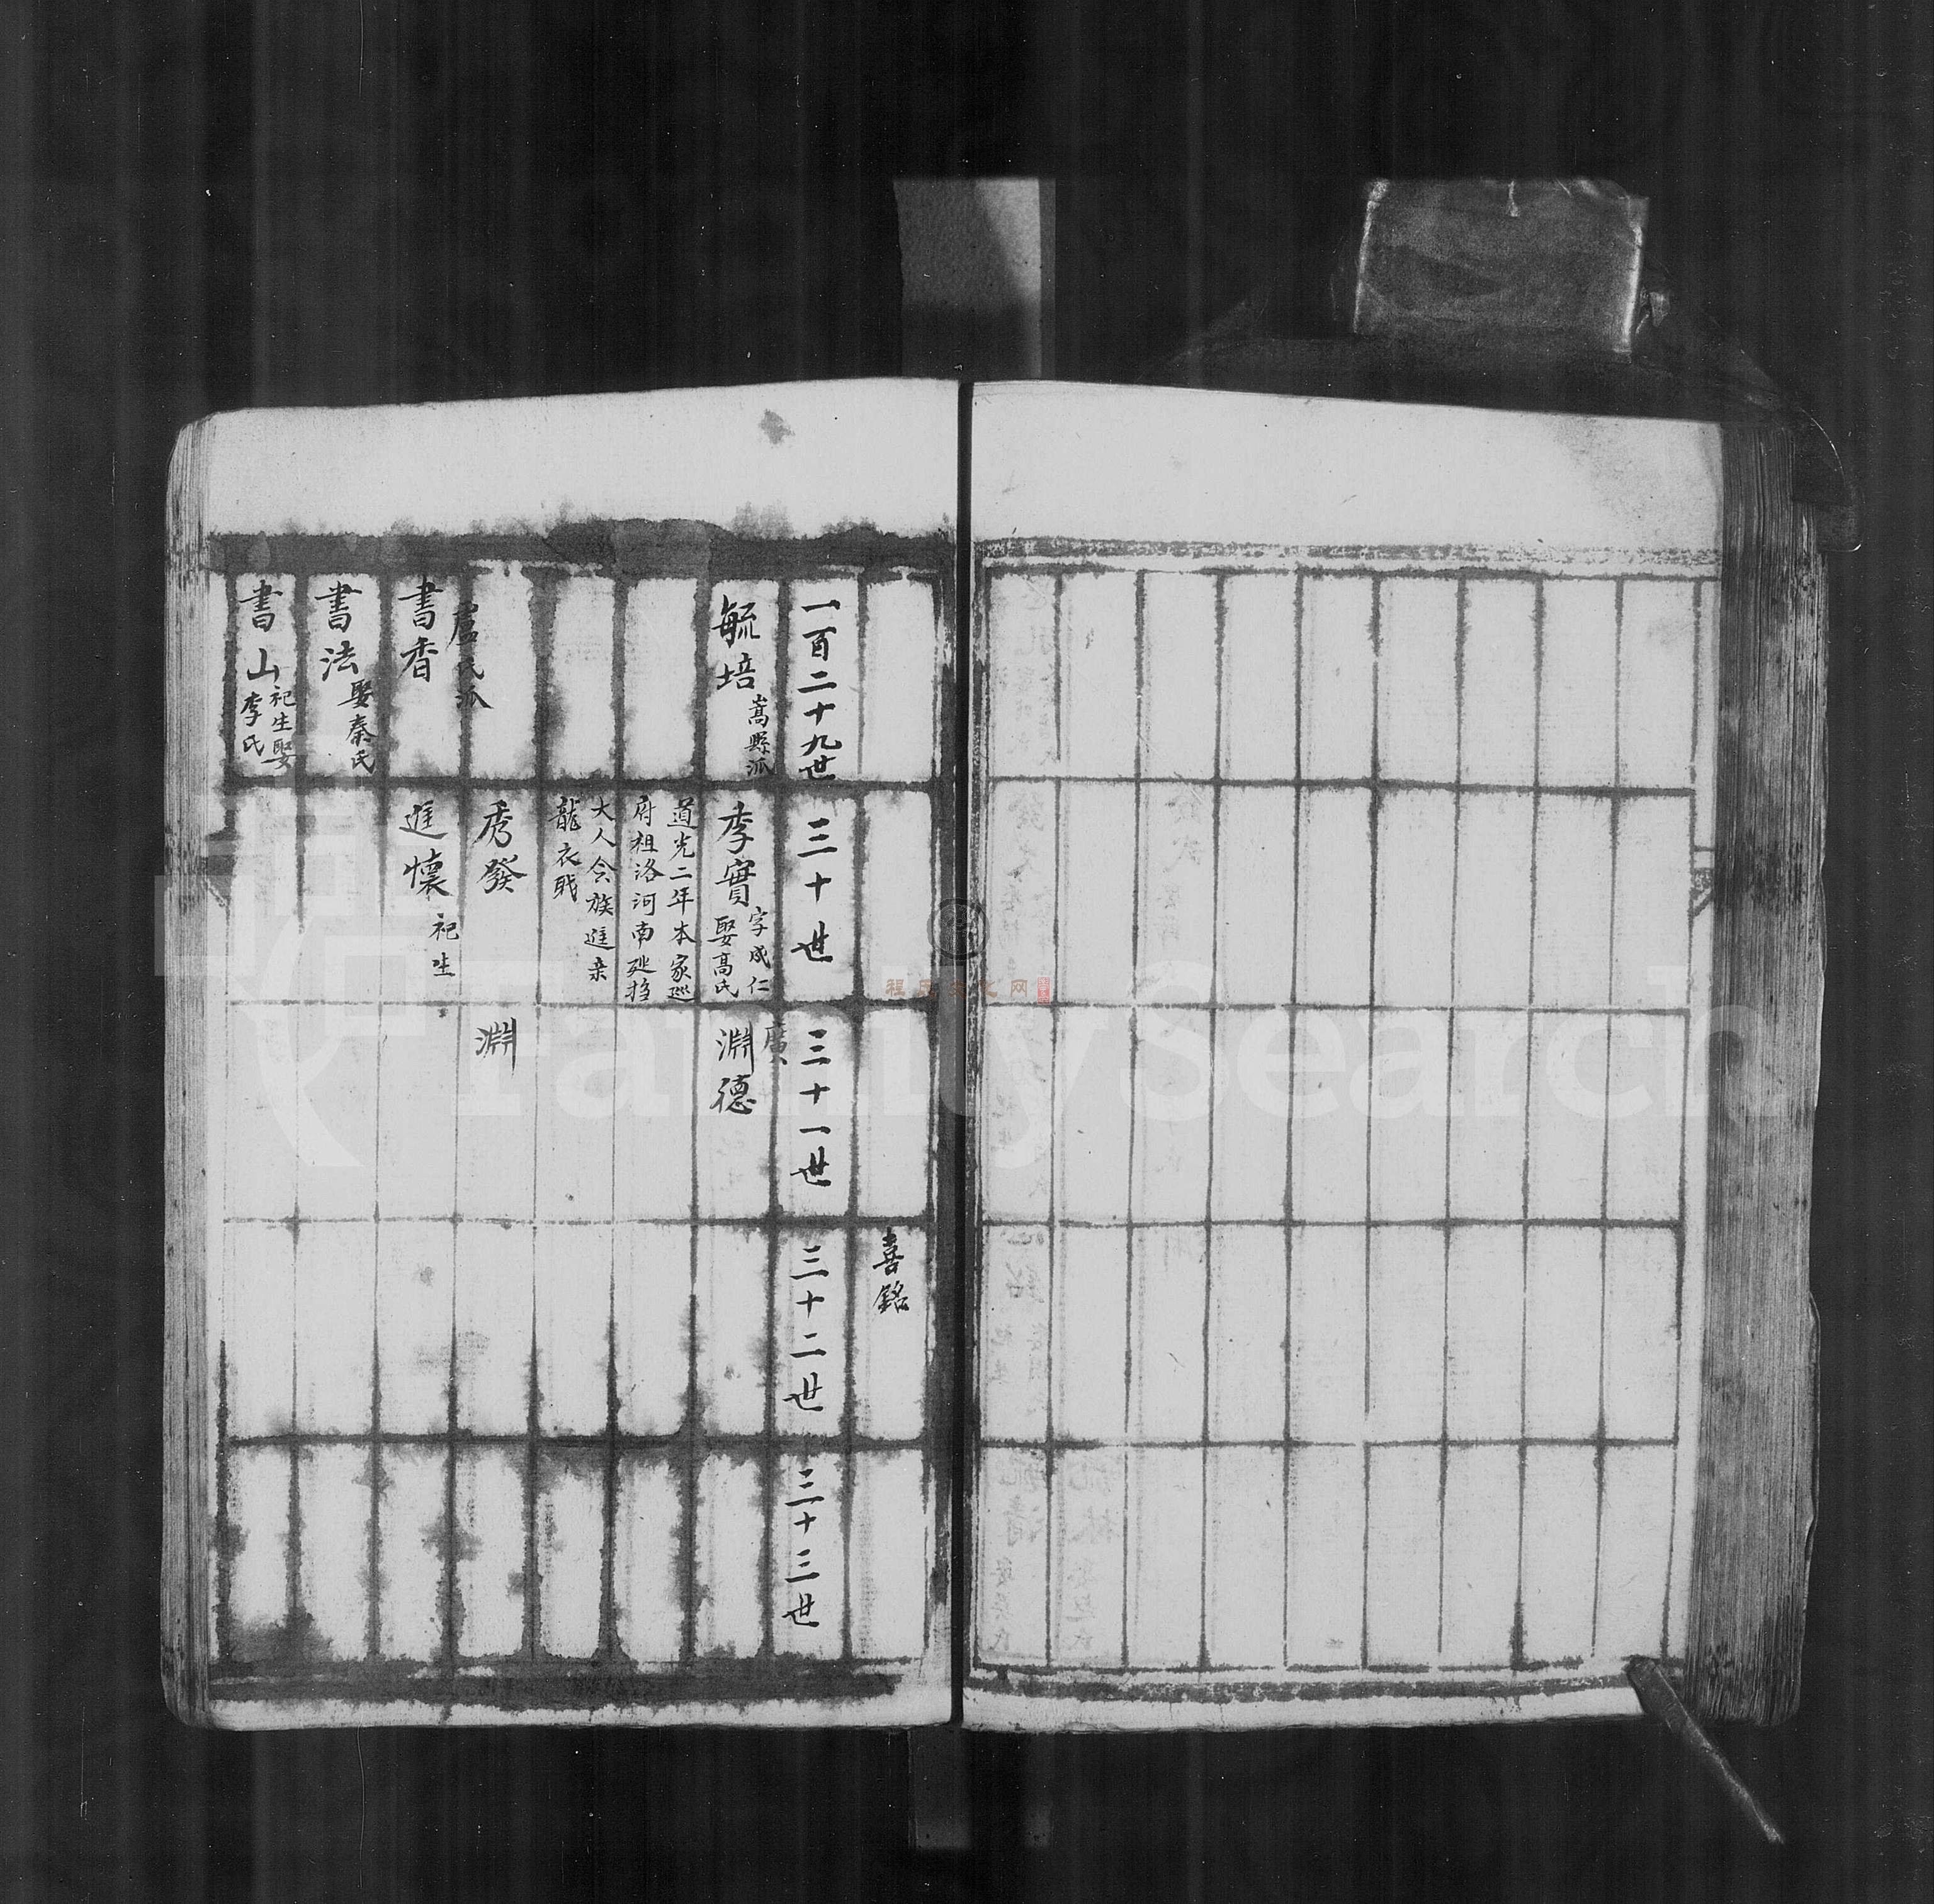 喜銘
一百二十九世
三十世
三十一世
三十二世
三十三世
毓培
嵩縣派
李實
字成仁
娶高氏
廣
淵德
道光二年本家巡
府祖洛河南
大人令族進亲
龍衣戝
盧氏派
秀發
淵
書香
進懷
祀生
書法
娶秦氏
書山
祀生娶
李氏
FamilySearch